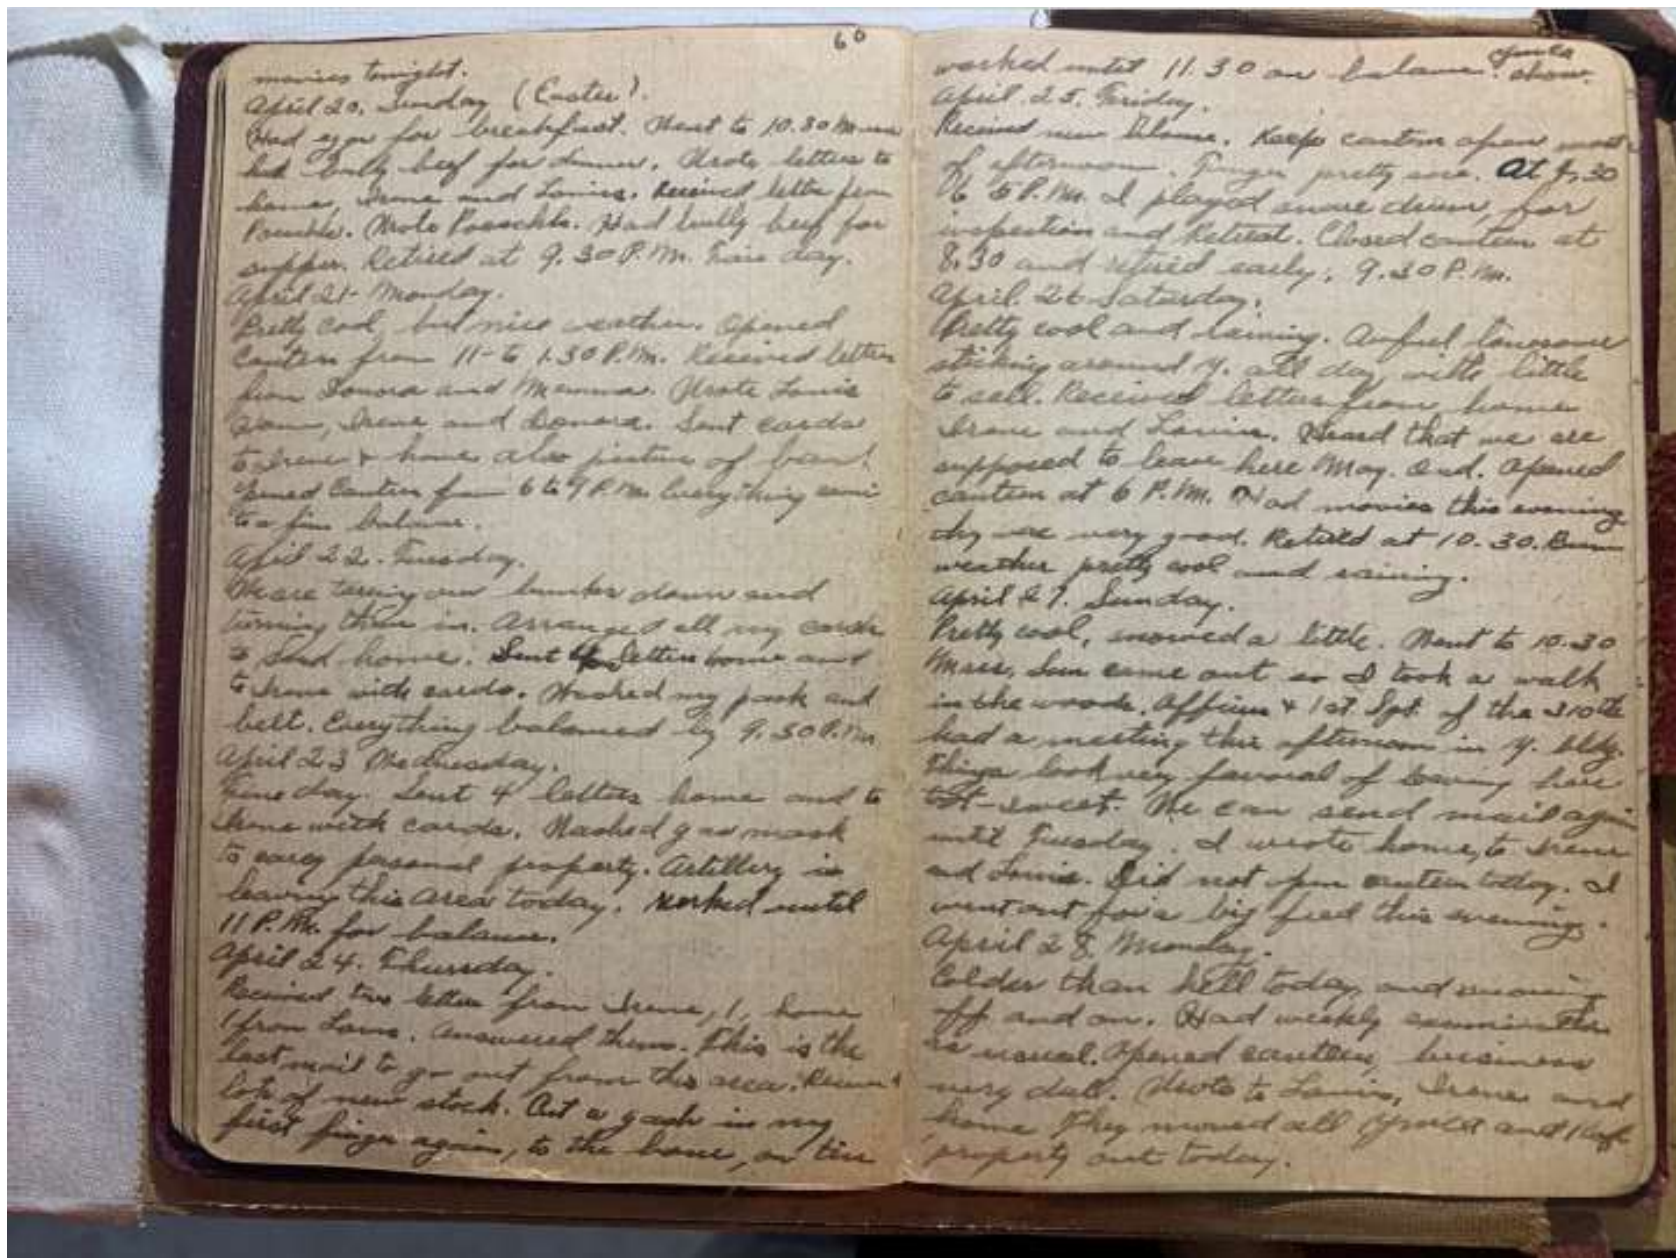 60
movies tonight.
April 20. Sunday (Easter).
Had eggs for breakfast. Went to 10.30 Mass
had bully beef for dinner. Wrote letters to
home, Irene and Louis. Received letter from
Wrote Had bully beef for
supper. Retired at 9.30 P.M. Fair day.
April 21- Monday.
Pretty cool, but nice weather. Opened
Canteen from 11- to 1.30 P.M. Received letters
from and Mamma. Wrote Louis
Irene and Sent cards
to Irene + home also picture of
Opened Canteen from 6 to 9 P.M. Everything came
to a fine balance.
April 22. Tuesday.
We are tearing our bunks down and
turning them in. Arranged all my cards
to send home. Sent letters home and
to Irene with cards. Washed my pack and
belt. Everything balanced by 9.30 P.M.
April 23 Wednesday.
Fine day. Sent 4 letters home and to
Irene with cards. Washed gas mask
to carry personal property. Artillery is
leaving this area today. Worked until
11 P.M. for balance.
April 24. Thursday.
Received two letters from Irene, 1, home
1 from Louis. Answered them. This is the
last mail to go out from this area.
lots of new stock. Cut a gash in my
first finger again, to the bone, on tin
worked until 11.30 on balance. show.
April 25. Friday.
Received new Keep canteen open most
of afternoon. Finger pretty sore. At
to 5 P.M. I played snare drum, for
inspection and Retreat. Closed canteen at
8.30 and retired early, 9.30 P.M.
April. 26 Saturday.
Pretty cool and raining. Awful lonesome
sticking around Y. all day with little
to sell. Received letters from home
Irene and Louis. Heard that we are
supposed to leave here May. 2nd. Opened
canteen at 6 P.M. Had movies this evening
they were very good. Retired at 10.30.
weather pretty cool and raining.
April 27. Sunday.
Pretty cool, snowed a little. Went to 10.30
Mass, Sun came out so I took a walk
in the woods. Officers + 1st. Sgt. of the 310th
had a meeting this afternoon in Y. bldg.
Things look very favoral of leaving here
toot-sweet. We can send mail again
until Tuesday. I wrote home, to Irene
and Louis. Did not open canteen today. I
went out for a big feed this evening.
April 28 Monday.
Colder than hell today, and snowing
off and on. Had weekly examination
as usual. Opened canteen, business
very dull. Wrote to Louis, Irene and
home They moved all and
property out today.